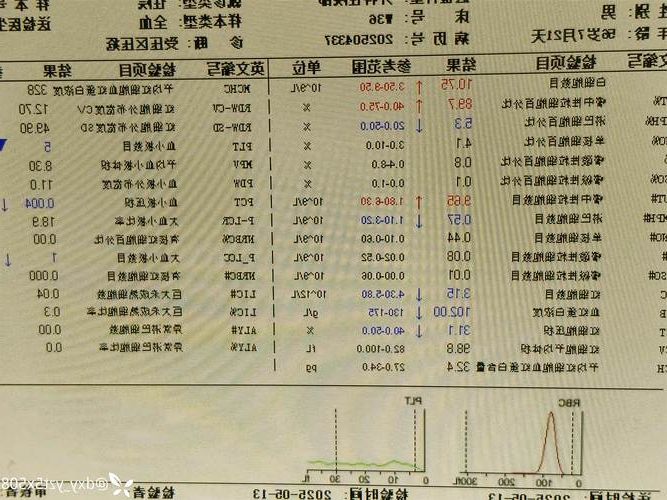 性别：男
床 号：W36
样本类型：全血
年龄：56岁7月21天
病 历 号：202504337
诊 断：受压区压疮
检验项目 结果 参考范围 单位 英文编写 检验项目 结果
白细胞数目 10.75 ↑ 3.50-9.50 10^9/L MCHC 平均红细胞血红蛋白浓度 328
嗜中性粒细胞百分比 89.7 ↑ 40.0-75.0 % RDW-CV 红细胞分布宽度CV 12.70
淋巴细胞百分比 5.3 ↓ 20.0-50.0 % RDW-SD 红细胞分布宽度SD 49.90
单核细胞百分比 4.1 3.0-10.0 % PLT 血小板数目 5
嗜酸性粒细胞百分比 0.8 0.4-8.0 % MPV 平均血小板体积 8.30
嗜碱性粒细胞百分比 0.1 0.0-1.0 % PDW 血小板分布宽度 11.0
嗜中性粒细胞数目 9.65 ↑ 1.80-6.30 10^9/L PCT 血小板压积 0.004 ↓
淋巴细胞数目 0.57 ↓ 1.10-3.20 10^9/L P-LCR 大血小板比率 18.9
单核细胞数目 0.44 0.10-0.60 10^9/L NRBC% 有核红细胞百分比 0.00
嗜酸性粒细胞数目 0.08 0.02-0.52 10^9/L P_LCC 大血小板数目 1 ↓
嗜碱性粒细胞数目 0.01 0.00-0.06 10^9/L NRBC# 有核红细胞数目 0.000
红细胞数目 3.15 ↓ 4.30-5.80 10^12/L LIC# 巨大未成熟细胞数 0.04
血红蛋白浓度 102.00 ↓ 130-175 g/L LIC% 巨大未成熟细胞比率 0.3
红细胞压积 31.1 ↓ 40.0-50.0 % ALY# 异常淋巴细胞数 0.00
红细胞平均体积 98.8 82.0-100.0 fL ALY% 异常淋巴细胞比率 0.0
平均红细胞血红蛋白含量 32.4 27.0-34.0 pg
RBC
PLT
0 100 300fL
0 30 fL
2025-05-13
检验时间 2025-05-13
检验者
审核者
@dxy_yzt5x508